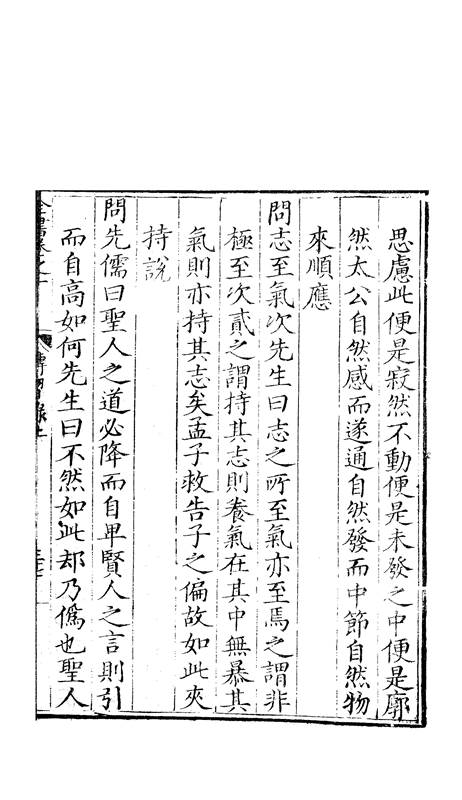 思慮此便是寂然不動便是未發之中便是廓
然太公自然感而遂通自然發而中節自然物
來順應
問志至氣次先生曰志之所至氣亦至焉之謂非
極至次貳之謂持其志則養氣在其中無暴其
氣則亦持其志矣孟子救告子之偏故如此夾
持說
問先儒曰聖人之道必降而自卑賢人之言則引
而自高如何先生曰不然如此却乃僞也聖人
傳習錄上